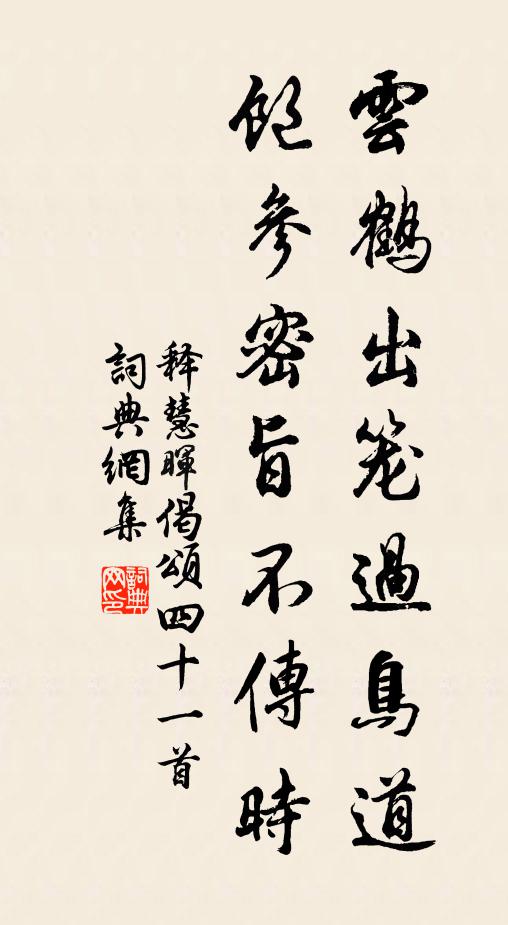 雲鶴出笼過鳥道
飽參密旨不傳時
释慧暉偈頌四十一首
詞典網集
詞典網印